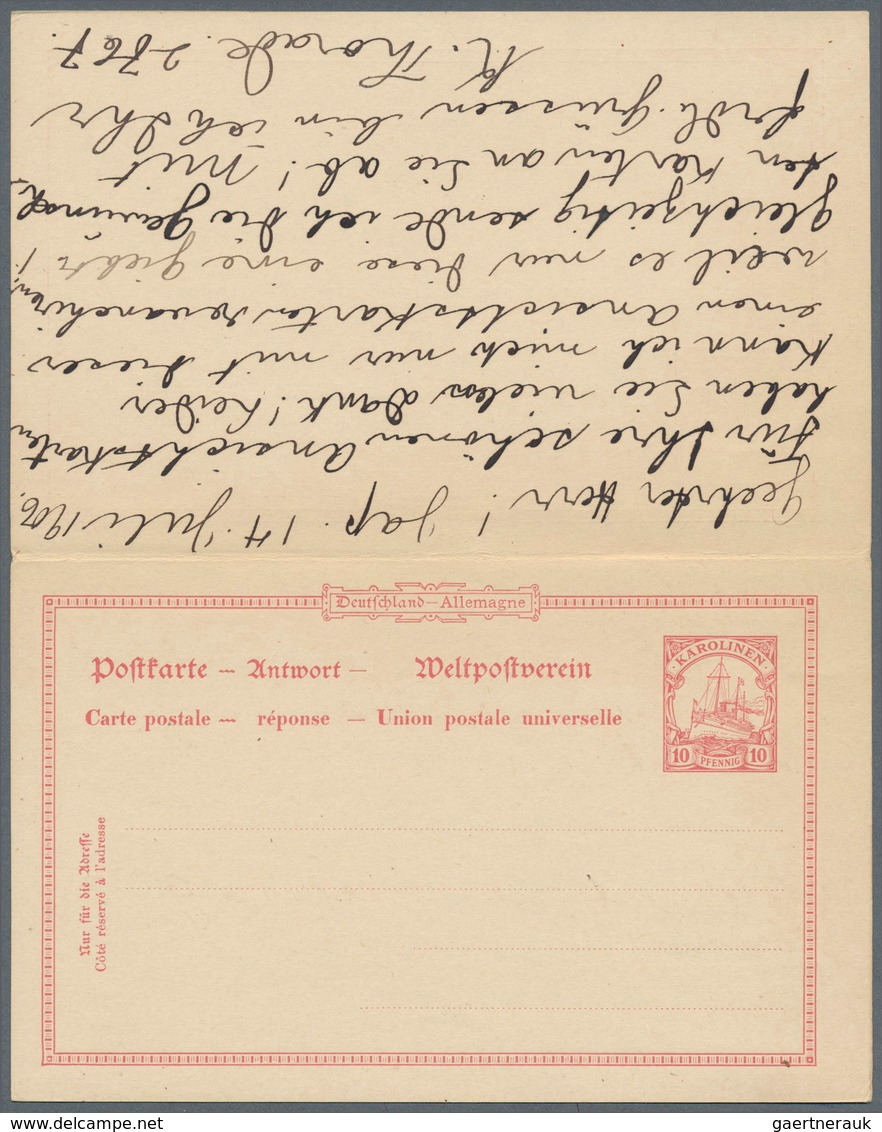 Geehrter Herr! Jap. 14. Juli 1906.
Für Ihre schönen Ansichtskarten
haben Sie vielen Dank! Leider
kann ich mich nur mit dieser
einen Ansichtskarte revanchiren,
weil es nur diese eine giebt!
Gleichzeitig sende ich die gewünsch-
ten Karten an Sie ab! Mit
frdl. Grüssen bin ich Ihr
K. Thorade.
Deutschland–Allemagne
Postkarte — Antwort — Weltpostverein
Carte postale — réponse — Union postale universelle
KAROLINEN
10 PFENNIG 10
Nur für die Adresse
Côté réservé à l'adresse
www.delcampe.net
gaertnerauk